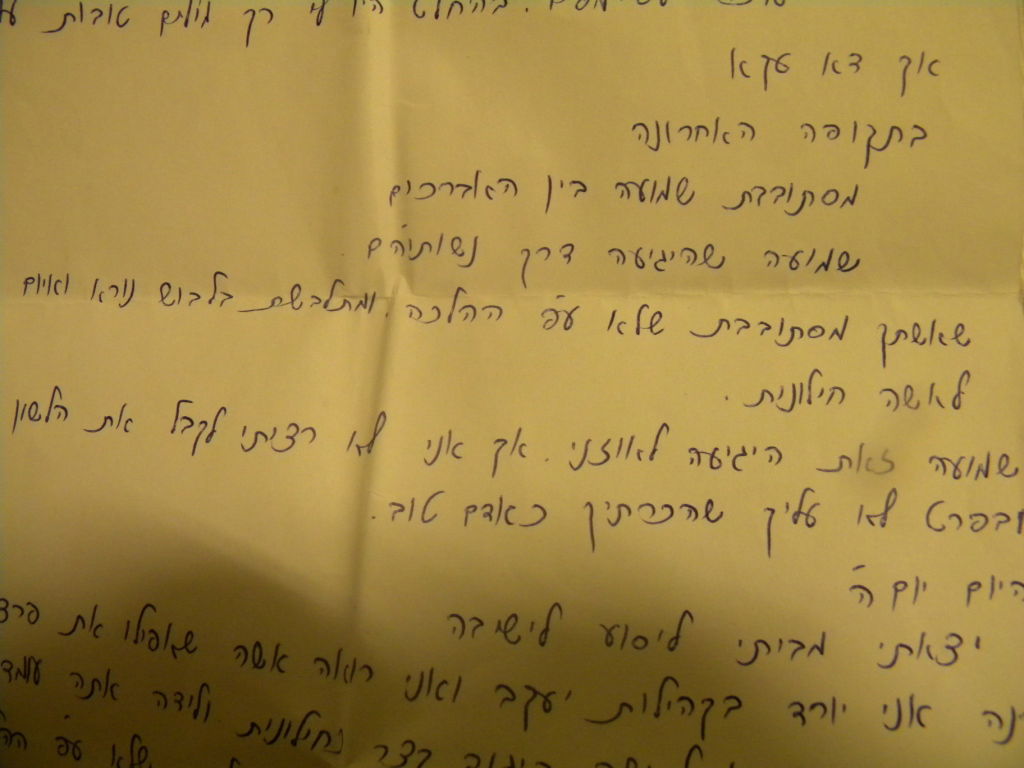 בהחלט היו לי רק מילים טובות
אך דא עקא
בתקופה האחרונה
מסתובבת שמועה בין האברכים
שמועה שהיגיעה דרך נשותיהם
שאשתך מסתובבת שלא ע"פ ההלכה. ומתלבשת בלבוש נורא ואיום
לאשה חילונית.
שמועה זאת היגיעה לאווזני. אך אני לא רציתי לקבל את הלשון
ובפרט לא עליך שהכרתיך כאדם טוב.
היום יום ה'
יצאתי מביתי ליסוע לישיבה
אני יורד בקהילות יעקב ואני רואה אשה שאפילו את
כחילונית ולידה אתה עומד
שלא ע"פ